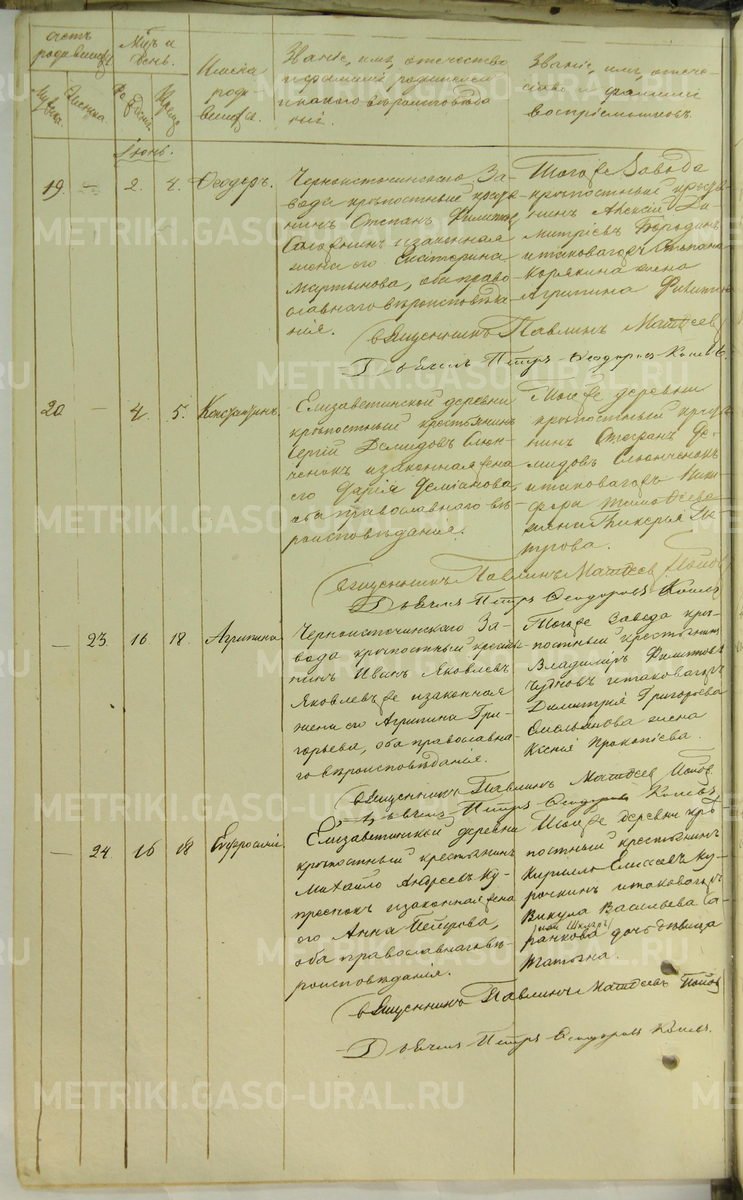 Счетъ родившихся
Мужеска.
Женска.
Мѣц и день.
Рожденія
Крещенія
Имена родившихся.
Званіе, имя, отечество и фамилія родителей и какого вѣроисповѣданія.
Званіе, имя, отечество и фамилія воспріемниковъ.
Іюнь.
19.
—
2.
4.
Ѳеодоръ.
Черноисточинскаго За-
вода крѣпостный крестья
нинъ Стефанъ Филипповъ
и законная
жена его Екатерина
Мартынова, оба право-
славнаго вѣроисповѣда
нія.
Тогоже Завода
крѣпостный крестья
нинъ Алексій Ди-
митріевъ Бородинъ
и таковагожъ Стефана
Корякина жена
Агрипина Филиппова
Священникъ Павлинъ Матѳеевъ
Дьячекъ Петръ Ѳеодоровъ
20
—
4.
5.
Константинъ.
Елизаветинской деревни
крѣпостный крестьянинъ
Сергій Демидовъ Слюн-
ченокъ и законная жена
его Дарія Деміанова,
оба православнаго вѣ-
роисповѣданія.
Тоиже деревни
крѣпостный крестья
нинъ Стефанъ Де-
мидовъ Слюнченокъ
и таковагожъ Ники-
фора Тимоѳеева
жена Гликерія Пе-
трова.
Священникъ Павлинъ Матѳеевъ Поповъ
Дьячекъ Петръ Ѳеодоровъ
—
23.
16
18.
Агрипина
Черноисточинскаго За-
вода крѣпостный крестья
нинъ Иванъ Яковлевъ
Яковлевъ же и законная
жена его Агрипина Гри-
горьева, оба православна-
го вѣроисповѣданія.
Тогоже Завода крѣ-
постный крестьянинъ
Владиміръ Филипповъ
Чудновъ и таковагожъ
Димитрія Григорьева
Омельянова жена
Ксенія Прокопіева.
Священникъ Павлинъ Матѳеевъ Поповъ
Дьячекъ Петръ Ѳеодоровъ
—
24
16
18
Евфросинія.
Елизаветинской деревни
крѣпостный крестьянинъ
Михайло Андреевъ Ку-
преенокъ и законная жена
его Анна Петрова,
оба православнаго вѣ-
роисповѣданія.
Тоиже деревни крѣ
постный крестьянинъ
Кирилло Елисеевъ Ку-
рочкинъ и таковагожъ
Викула Васильева Са-
ранкова дочь дѣвица
Татьяна.
Священникъ Павлинъ Матѳеевъ Поповъ
Дьячекъ Петръ Ѳеодоровъ
METRIKI.GASO-URAL.RU
METRIKI.GASO-URAL.RU
METRIKI.GASO-URAL.RU
METRIKI.GASO-URAL.RU
METRIKI.GASO-URAL.RU
METRIKI.GASO-URAL.RU
METRIKI.GASO-URAL.RU
METRIKI.GASO-URAL.RU